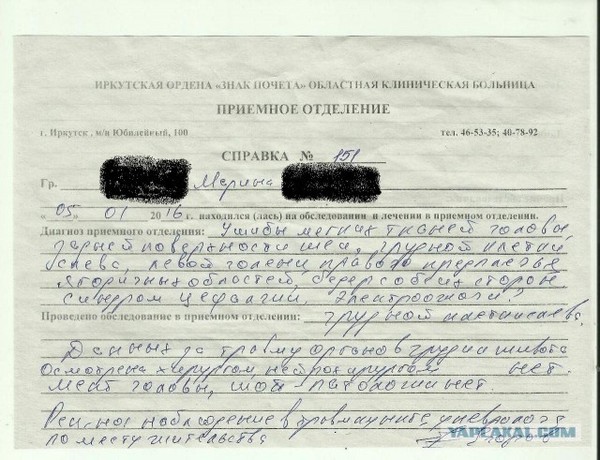 ИРКУТСКАЯ ОРДЕНА «ЗНАК ПОЧЕТА» ОБЛАСТНАЯ КЛИНИЧЕСКАЯ БОЛЬНИЦА
ПРИЕМНОЕ ОТДЕЛЕНИЕ
г. Иркутск, м/н Юбилейный, 100 тел. 46-53-35; 40-78-92
СПРАВКА № 151
Гр. Марина
«05» 01 2016 г. находился (лась) на обследовании и лечении в приемном отделении.
Диагноз приемного отделения: Ушибы мягких тканей головы
задней поверхности шеи, грудной клетки
слева, левой голени правого предплечья
ягодичных областей, бедер с обеих сторон
синдром цефалгии. Электроожоги?
Проведено обследование в приемном отделении: грудной клетки слева.
Данных за травму органов груди и живота
осмотрена хирургом, нейрохирургом нет.
головы, шои патологии нет.
наблюдение в травмпункте, у невролога
по месту жительства
YAPLAKAL.COM